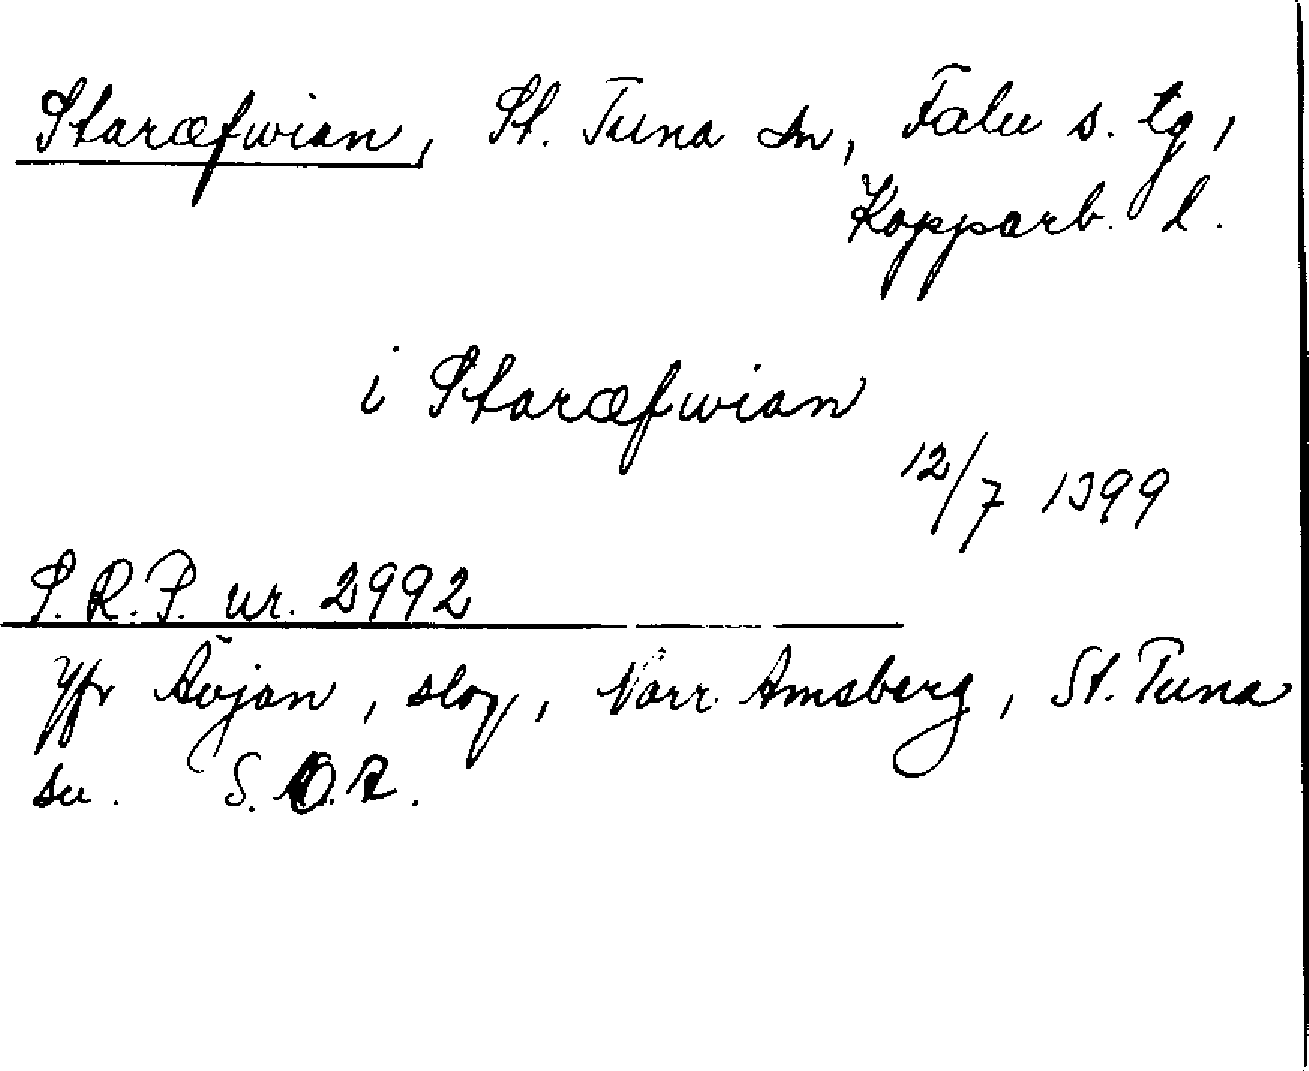 Staræfwian, St. Tuna sn, Falu s. tg,
Kopparb. l.
i Staræfwian
12/7 1399
S.R.P. nr. 2992
Jfr Åvjan, slog, Norr Amsberg, St. Tuna
sn. S.O.A.